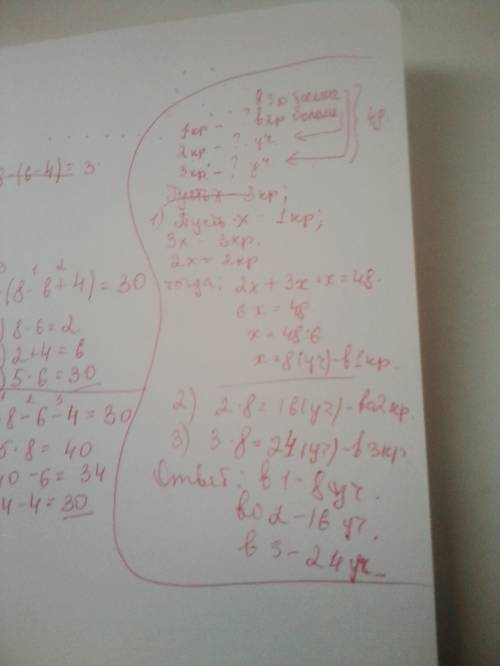 8-(6-4)=3
3 1 2
(8-6+4)=30
8-6=2
2+4=6
5·6=30
8-6-4=30
5·8=40
40-6=34
34-4=30
? в 3р больше
1кр - ? в 2р больше
2кр - ? уч
3кр - ? уч
48
Пусть x - 3кр;
1) Пусть x - 1кр;
3x - 3кр.
2x - 2кр
тогда: 2x+3x+x=48
6x=48
x=48:6
x=8(уч)-в 1кр.
2) 2·8=16(уч)-во 2кр.
3) 3·8=24(уч)-в 3кр
Ответ: в 1-8уч.
во 2-16 уч.
в 3-24уч